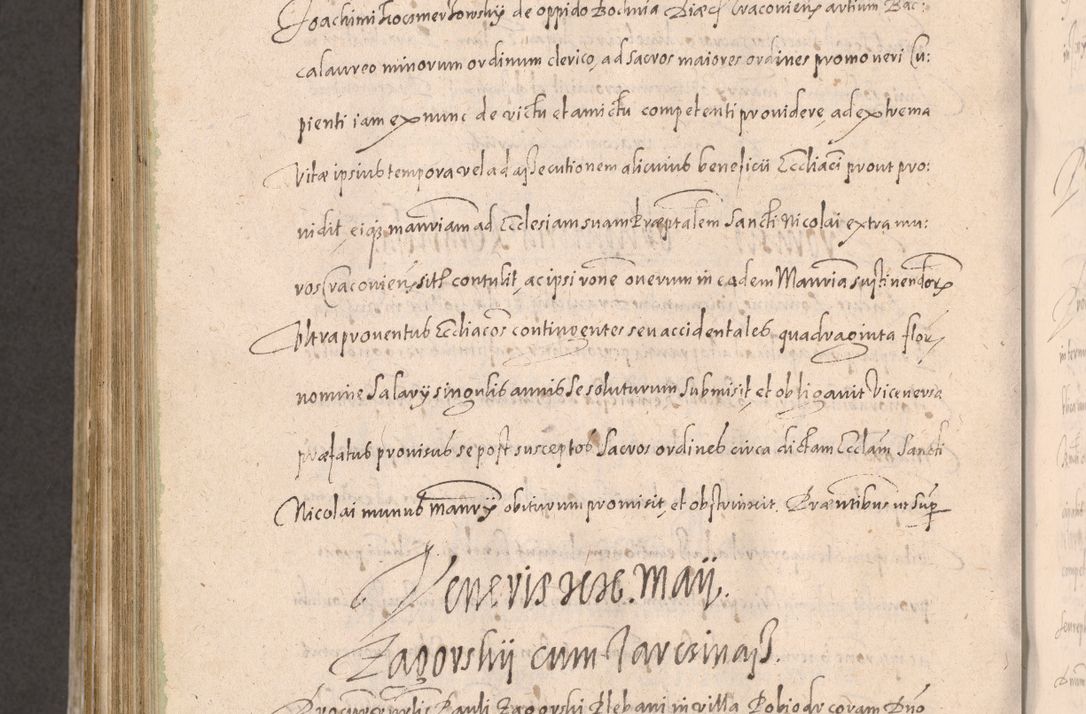 Joachimi Kocsmerkowskÿ de oppido Bochnia Diæc Cracovien artium Bac:
calaureo minorum ordinum clerico, ad sacros maiores ordines promoveri cu:
pienti iam ex nunc de victu et amictu competenti providere, ad extrema
vitæ ipsius tempora vel ad assecutionem alicuius beneficii Eccliaci prout pro:
vidit, eiq3 mansriam ad Ecclesiam suam Præptalem Sancti Nicolai extra mu:
ros Cracovien, sitt contulit, ac ipsi rone onerum in eadem Mansria sustinendor
Ultra proventus Eccliacos contingentes seu accidentales quadraginta flor
nomine Salarÿ singulis annis se soluturum submisit et obligavit viceversa
præfatus provisus se post susceptos Sacros ordines circa dictam Ecclam Sancti
Nicolai munus Mansrÿ obiturum promisit, et obstrinxit. Præntibus ut supr
Veneris Maij.
Zagorskij cum
Pauli Zagorski Plebani in villa Pobiedr coram Dno